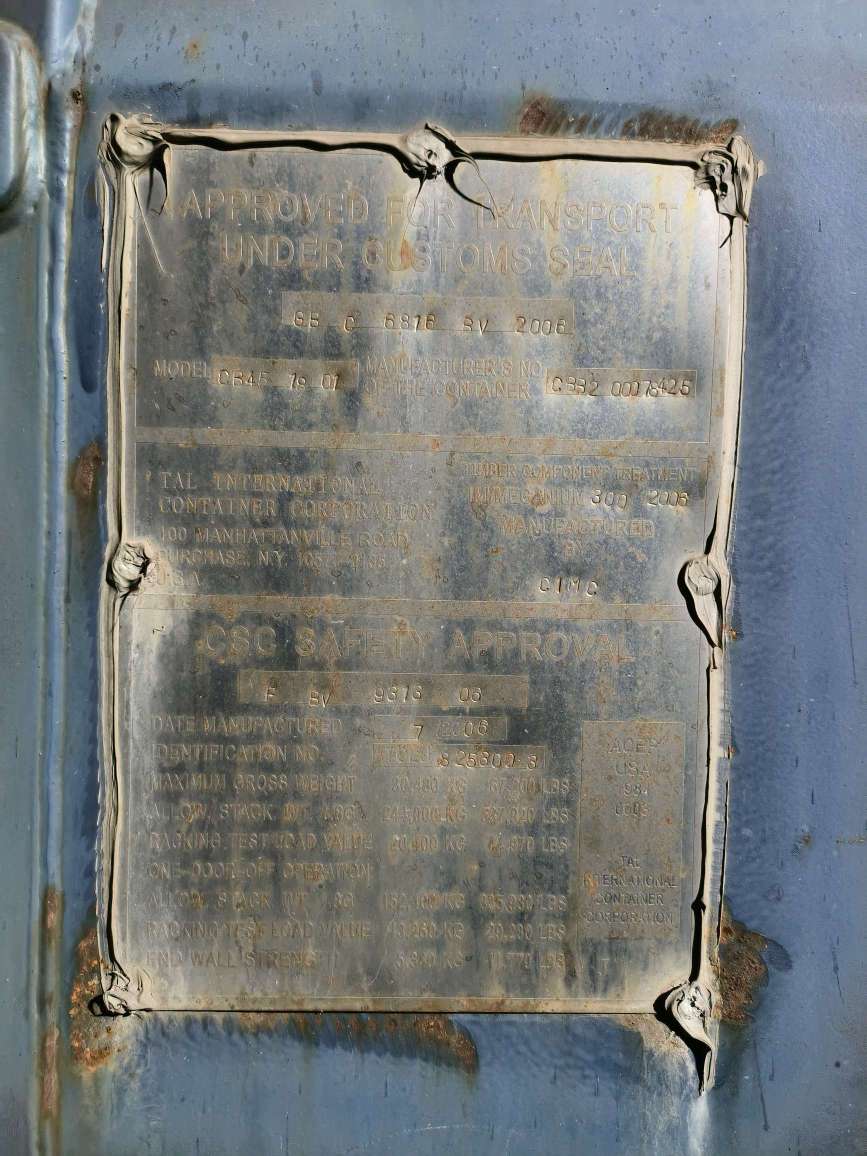 APPROVED FOR TRANSPORT
UNDER CUSTOMS SEAL
GB C 6816 BV 2006
MODEL CB45 19 01
MANUFACTURER'S NO.
OF THE CONTAINER CBB2 00078425
TAL INTERNATIONAL
CONTAINER CORPORATION
100 MANHATTANVILLE ROAD
PURCHASE, N.Y.
U.S.A.
TIMBER COMPONENT TREATMENT
IM/MEGANIUM 300 2006
MANUFACTURED
BY
CIMC
CSC SAFETY APPROVAL
F BV 9376 06
DATE MANUFACTURED 7 2006
IDENTIFICATION NO. 825300 3
MAXIMUM GROSS WEIGHT 30,480 KG 67,200 LBS
ALLOW. STACK WT. 1.8G KG LBS
RACKING TEST LOAD VALUE KG LBS
ONE-DOOR-OFF OPERATION
ALLOW. STACK WT. 1.8G KG LBS
RACKING TEST LOAD VALUE KG LBS
END WALL STRENGTH KG LBS
ACEP
USA
TAL
INTERNATIONAL
CONTAINER
CORPORATION